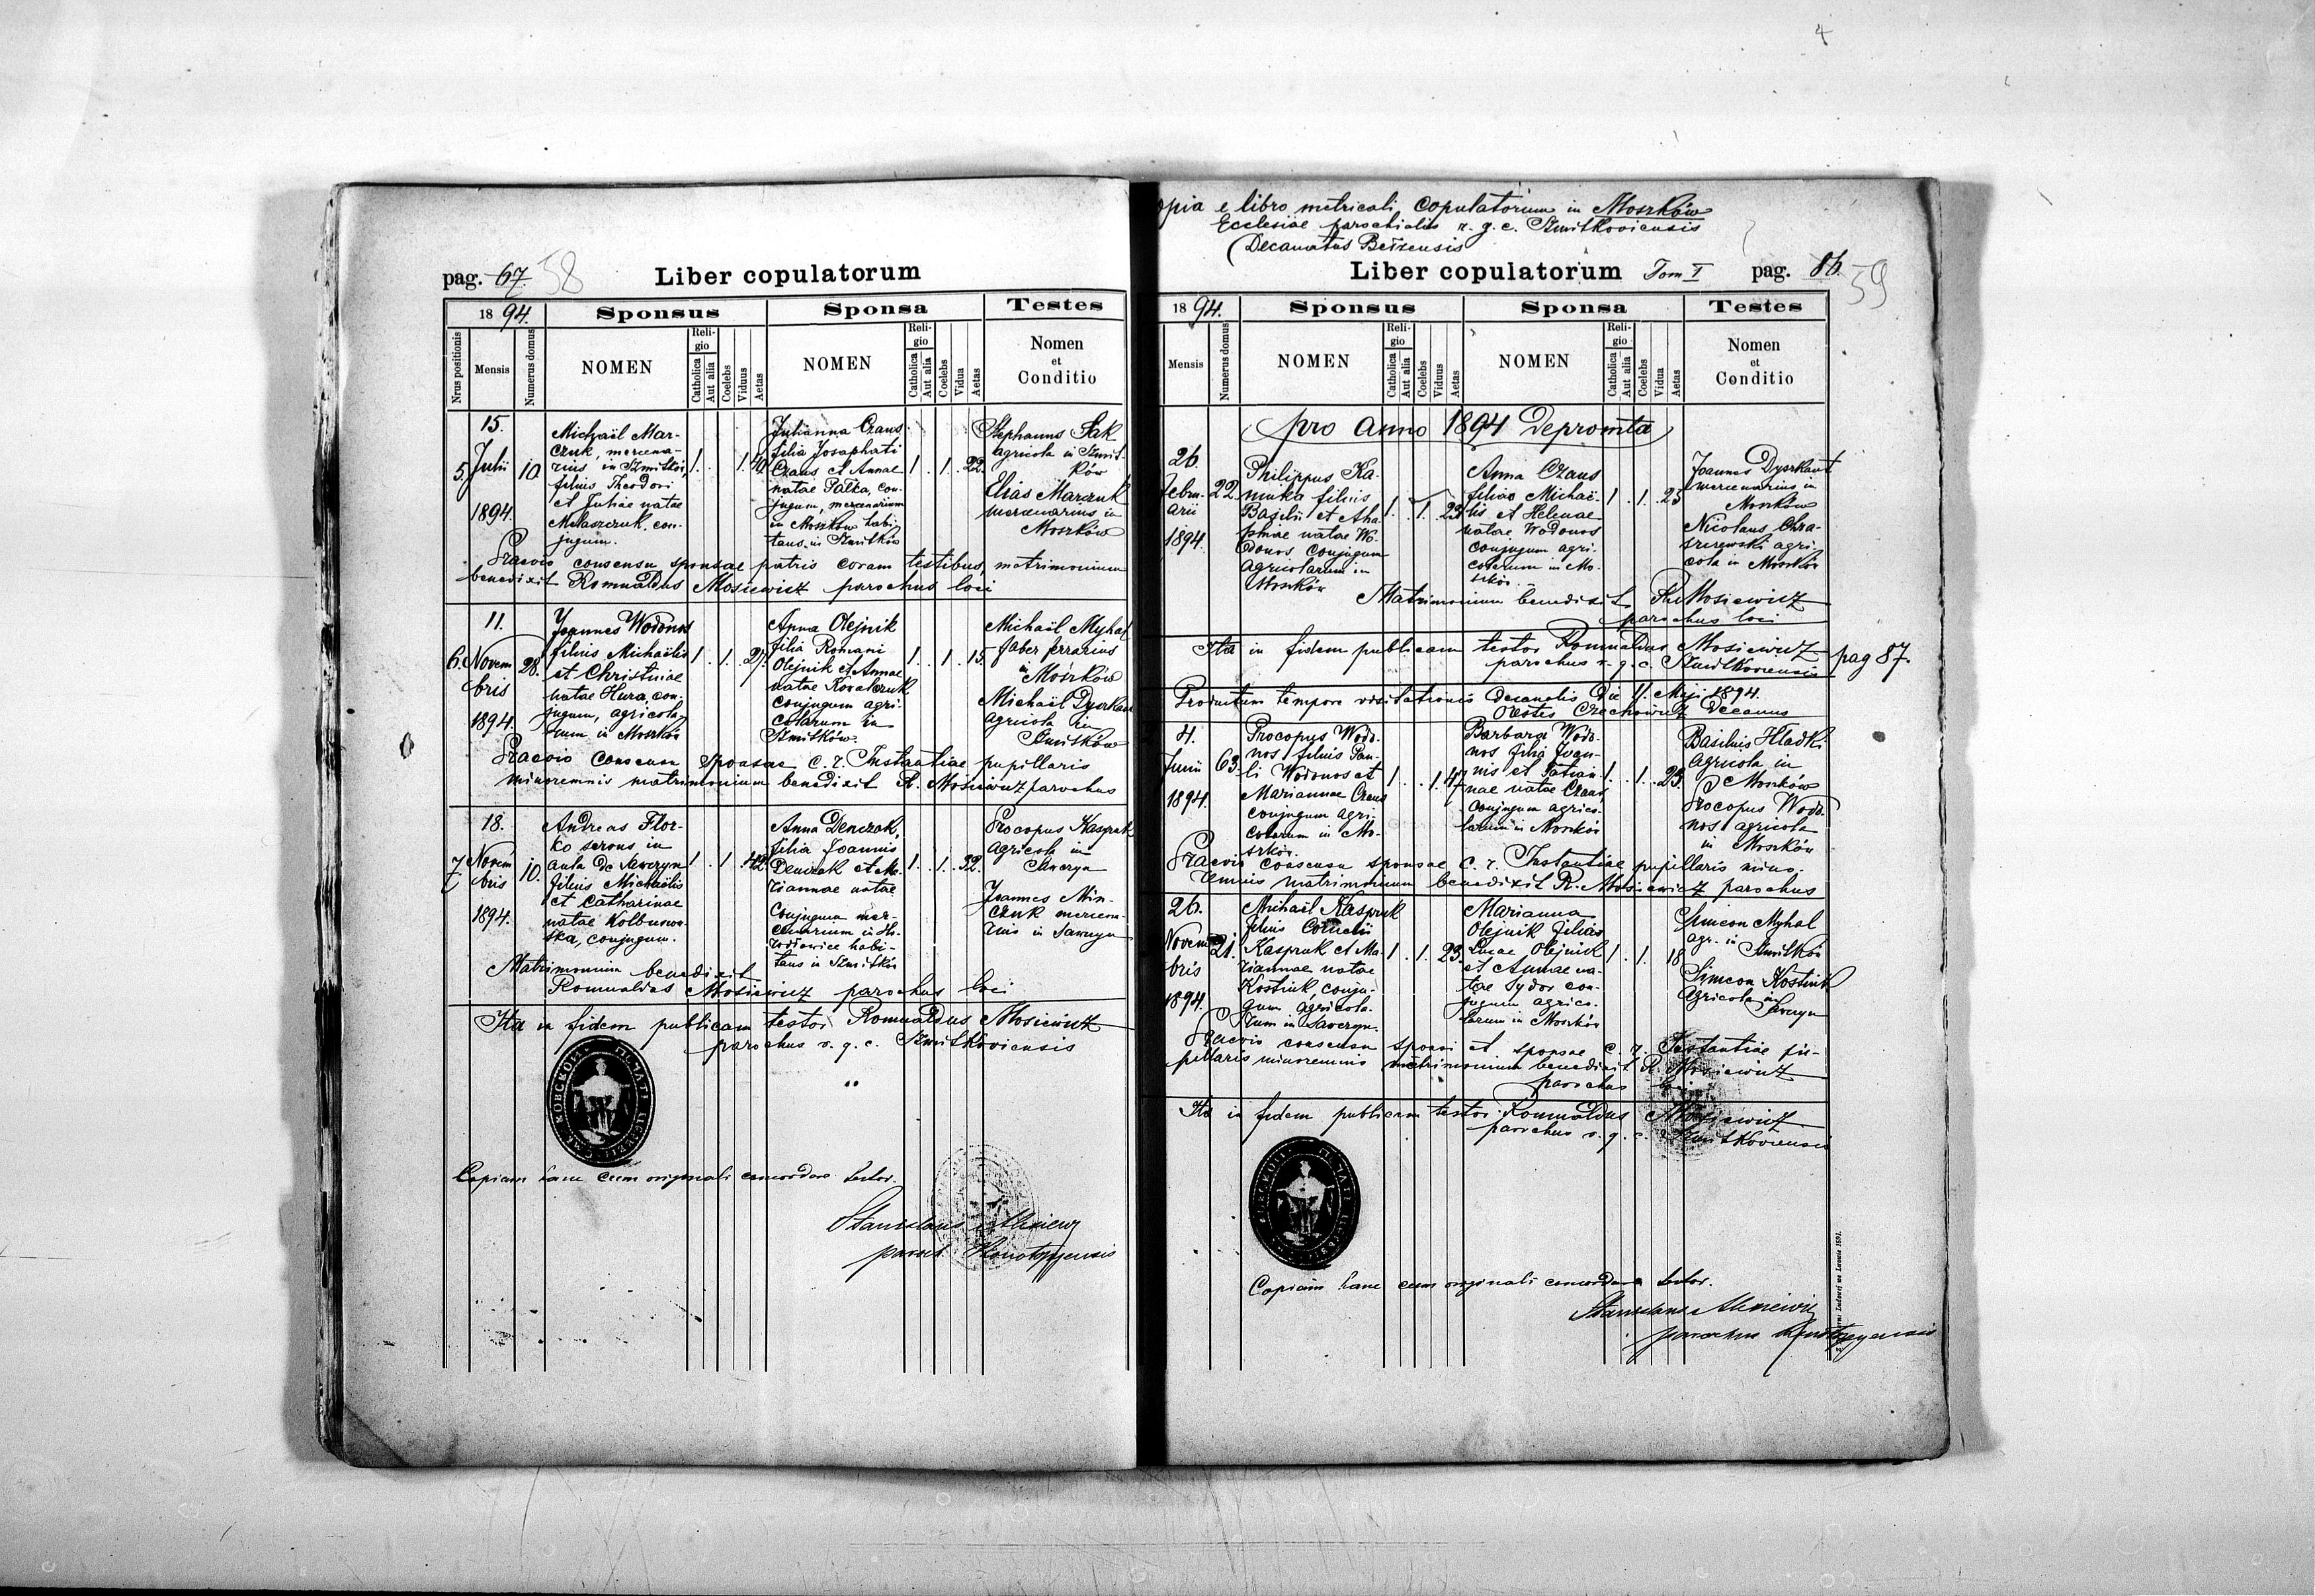 pag. 67. 58
Liber copulatorum
1894. Sponsus Sponsa Testes
Nrus positionis Mensis Numerus domus NOMEN Religio Catholica Aut alia Coelebs Viduus Aetas NOMEN Religio Catholica Aut alia Coelebs Vidua Aetas Nomen et Conditio
5.
15.
Julii
1894.
10
Michaël Mar-
czuk, mercena-
rius in Szmitków,
filius Theodori
et Juliae natae
con-
jugum.
1. 1. 40.
Julianna Czaus
filia Josaphati
Czaus et Annae
natae Pałka, con-
jugum, mercenariorum
in Moszków habi-
tans in Szmitków
1. 1. 22.
Stephanus Sak
agricola in Szmit-
ków
Elias Marczuk
mercenarius in
Moszków
Praevio consensu sponsae patris coram testibus, matrimonium
benedixit Romualdus Mosiewicz parochus loci
6.
11.
Novem
bris
1894.
28.
Joannes Wodonos
filius Michaëlis
et Christinae
natae Hura, con-
jugum, agricola-
rum in Moszków
1. 1. 27.
Anna Olejnik
filia Romani
Olejnik et Annae
natae Kowalczuk
conjugum agri-
colarum in
Szmitków.
1. 1. 15.
Michaël Myhal
faber ferrarius
in Moszków
Michaël Dyszkant
agricola in
Szmitków
Praevio consensu sponsae c. r. Instantiae pupillaris
minorennis matrimonium benedixit R. Mosiewicz parochus
7
18.
Novem
bris
1894.
10.
Andreas Flor-
ko servus in
aula de Sawczyn
filius Michaëlis
et Catharinae
natae Kolbusow-
ska, conjugum.
1. 1. 42.
Anna Denczak,
filia Joannis
Denczak et Ma-
riannae natae
Conjugum mer-
cenarium in Ho-
rodłowice habi-
tans in Szmitków
1. 1. 32.
Procopus Kaspruk
agricola in
Sawczyn
Joannes Min-
czuk mercena-
rius in Sawczyn
Matrimonium benedixit
Romualdus Mosiewicz parochus loci
Ita in fidem publicam testor Romualdus Mosiewicz
parochus r. g. c. Szmitkoviensis
Copiam hanc cum originali concordare testor.
Stanislaus
paroch.
Copia e libro metricali copulatorum in Moszków
Ecclesiae parochialis r. g. c. Szmitkoviensis
(Decanatus Bełzensis
Liber copulatorum Tom I pag. 86. 59
1894. Sponsus Sponsa Testes
Mensis Numerus domus NOMEN Religio Catholica Aut alia Coelebs Viduus Aetas NOMEN Religio Catholica Aut alia Coelebs Vidua Aetas Nomen et Conditio
pro anno 1894 Depromta
26.
Febru-
arii
1894.
22.
Philippus Ka-
minka filius
Basilii et Aha-
phiae natae Wo-
donos, conjugum
agricolarum in
Moszków
1. 1. 23
Anna Czaus
filiae Michaë-
lis et Helenae
natae Wodonos
conjugum agri-
colarum in Mo-
szków.
1. 1. 23
Joannes Dyszkant
mercenarius in
Moszków
Nicolaus Chra-
szczewski agri-
cola in Moszków
Matrimonium benedixit R. Mosiewicz
parochus loci
Ita in fidem publicam testor Romualdus Mosiewicz
parochus r. g. c. Szmitkoviensis
pag 87.
Productum tempore visitationis decanalis die 1894.
Orestes Czechowicz Decanus
4.
Junii
1894.
63.
Procopus Wodo-
nos filius Pau-
li Wodonos et
Mariannae Czaus
conjugum agri-
colarum in Mo-
szków.
1. 1. 47
Barbara Wodo-
nos filia Joan-
nis et Tatian-
nae natae Czaus
conjugum agrico-
larum in Moszków
1. 1. 23.
Basilius Hładki
agricola in
Moszków
Procopus Wodo-
nos agricola
in Moszków
Praevio consensu sponsae c. r. Instantiae pupillaris mino-
rennis matrimonium benedixit R. Mosiewicz parochus
26.
Novem
bris
1894.
21.
Michaël Kaspruk
filius Cornelii
Kaspruk et Ma-
riannae natae
Kostiuk conju-
gum agricola-
rum in Sawczyn.
1. 1. 23.
Marianna
Olejnik filia
Lucae Olejnik
et Annae na-
tae Sydor con-
jugum agrico-
larum in Moszków
1. 1. 18
Simeon Myhal
agr. in Szmitków
Simeon Kostiuk
agricola in
Sawczyn
Praevio consensu sponsi et sponsae c. r. Instantiae pu-
pillaris minorennis matrimonium benedixit R. Mosiewicz
parochus loci
Ita in fidem publicam testor Romualdus Mosiewicz
parochus r. g. c. Szmitkoviensis
Copiam hanc cum originali concordare testor.
Stanislaus
parochus